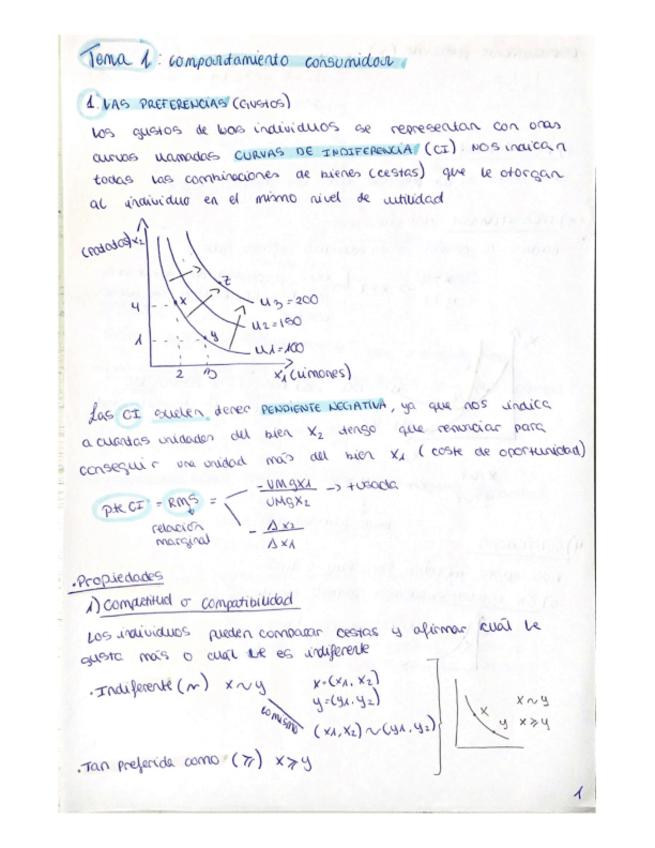 Tema 1: comportamiento consumidor
1. LAS PREFERENCIAS (Gustos)
Los gustos de los individuos se representan con unas
curvas llamadas CURVAS DE INDIFERENCIA (CI). Nos indican
todas las combinaciones de bienes (cestas) que le otorgan
al individuo en el mismo nivel de utilidad
x2
z
4
x
U3=200
U2=150
1
y
U1=100
2 3 x1 (limones)
Las CI suelen tener PENDIENTE NEGATIVA, ya que nos indica
a cuantas unidades del bien X2 tengo que renunciar para
conseguir una unidad más del bien X1 (coste de oportunidad)
pte CI = RMS = -UMgX1 / UMgX2 → + usada
relación
marginal
- Δx2 / Δx1
. Propiedades
1) Completitud o compatibilidad
Los individuos pueden comparar cestas y afirmar cuál le
gusta más o cuál le es indiferente
. Indiferente (~) x~y
x=(x1, x2)
y=(y1, y2)
lo mismo
(x1, x2) ~ (y1, y2)
x
y
x~y
x≽y
. Tan preferida como (≽) x≽y
1